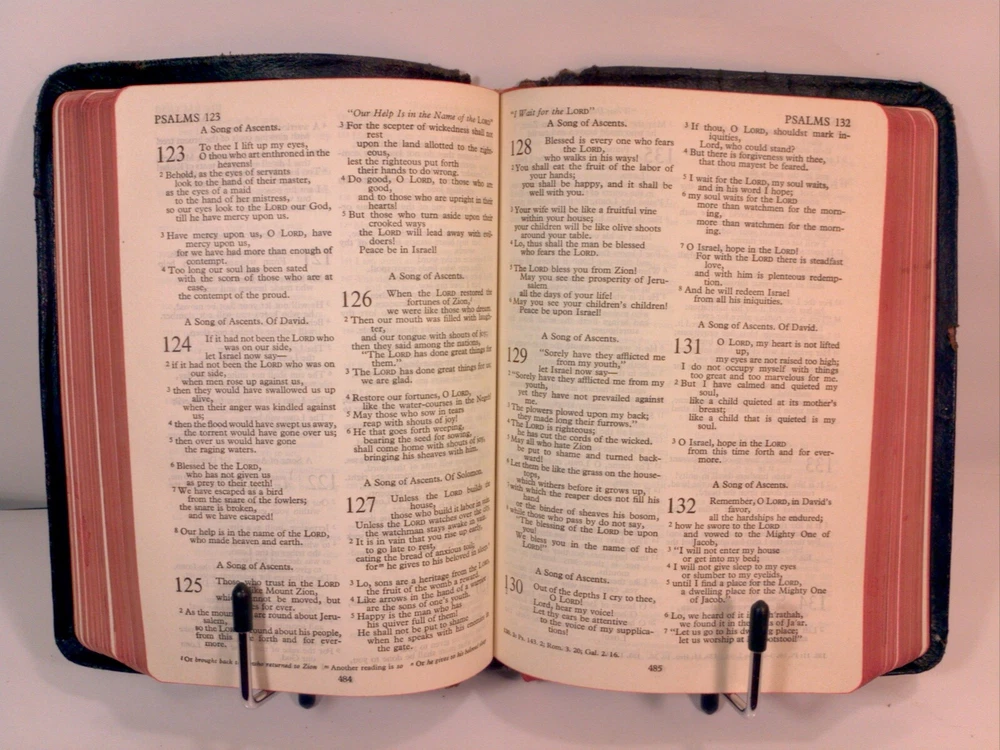 PSALMS 123
"Our Help Is in the Name of the LORD"
A Song of Ascents.
123 To thee I lift up my eyes,
O thou who art enthroned in the
heavens!
2 Behold, as the eyes of servants
look to the hand of their master,
as the eyes of a maid
to the hand of her mistress,
so our eyes look to the LORD our God,
till he have mercy upon us.
3 Have mercy upon us, O LORD, have
mercy upon us,
for we have had more than enough of
contempt.
4 Too long our soul has been sated
with the scorn of those who are at
ease,
the contempt of the proud.
A Song of Ascents. Of David.
124 If it had not been the LORD who
was on our side,
let Israel now say—
2 if it had not been the LORD who was on
our side,
when men rose up against us,
3 then they would have swallowed us up
alive,
when their anger was kindled against
us;
4 then the flood would have swept us away,
the torrent would have gone over us;
5 then over us would have gone
the raging waters.
6 Blessed be the LORD,
who has not given us
as prey to their teeth!
7 We have escaped as a bird
from the snare of the fowlers;
the snare is broken,
and we have escaped!
8 Our help is in the name of the LORD,
who made heaven and earth.
A Song of Ascents.
125 Those who trust in the LORD
like Mount Zion,
which cannot be moved, but
for ever.
2 As the mountains are round about Jeru-
salem,
so the LORD is round about his people,
from this forth and for ever-
more.
3 For the scepter of wickedness shall not
rest
upon the land allotted to the right-
eous,
lest the righteous put forth
their hands to do wrong.
4 Do good, O LORD, to those who are
good,
and to those who are upright in their
hearts!
5 But those who turn aside upon their
crooked ways
the LORD will lead away with evil-
doers!
Peace be in Israel!
A Song of Ascents.
126 When the LORD restored the
fortunes of Zion,
we were like those who dream.
2 Then our mouth was filled with laugh-
ter,
and our tongue with shouts of joy;
then they said among the nations,
"The LORD has done great things for
them."
3 The LORD has done great things for us;
we are glad.
4 Restore our fortunes, O LORD,
like the water-courses in the Negeb!
5 May those who sow in tears
reap with shouts of joy!
6 He that goes forth weeping,
bearing the seed for sowing,
shall come home with shouts of joy,
bringing his sheaves with him.
A Song of Ascents. Of Solomon.
127 Unless the LORD builds the
house,
those who build it labor in vain.
Unless the LORD watches over the city,
the watchman stays awake in vain.
2 It is in vain that you rise up early
to go late to rest,
eating the bread of anxious toil;
for he gives to his beloved sleep.
3 Lo, sons are a heritage from the LORD,
the fruit of the womb a reward.
4 Like arrows in the hand of a warrior
are the sons of one's youth.
5 Happy is the man who has
his quiver full of them!
He shall not be put to shame
when he speaks with his enemies in
the gate.
Or brought back who returned to Zion Another reading is so Or he gives to his beloved
484
"I Wait for the LORD"
PSALMS 132
A Song of Ascents.
128 Blessed is every one who fears
the LORD,
who walks in his ways!
2 You shall eat the fruit of the labor of
your hands;
you shall be happy, and it shall be
well with you.
3 Your wife will be like a fruitful vine
within your house;
your children will be like olive shoots
around your table.
4 Lo, thus shall the man be blessed
who fears the LORD.
5 The LORD bless you from Zion!
May you see the prosperity of Jeru-
salem
all the days of your life!
6 May you see your children's children!
Peace be upon Israel!
A Song of Ascents.
129 "Sorely have they afflicted me
from my youth,"
let Israel now say—
2 "Sorely have they afflicted me from my
youth,
yet they have not prevailed against
me.
3 The plowers plowed upon my back;
they made long their furrows."
4 The LORD is righteous;
he has cut the cords of the wicked.
5 May all who hate Zion
be put to shame and turned back-
ward!
6 Let them be like the grass on the house-
tops,
which withers before it grows up,
7 with which the reaper does not fill his
hand
or the binder of sheaves his bosom,
8 while those who pass by do not say,
"The blessing of the LORD be upon
you!
We bless you in the name of the
LORD!"
A Song of Ascents.
130 Out of the depths I cry to thee,
O LORD!
2 Lord, hear my voice!
Let thy ears be attentive
to the voice of my supplica-
tions!
3 If thou, O LORD, shouldst mark in-
iquities,
Lord, who could stand?
4 But there is forgiveness with thee,
that thou mayest be feared.
5 I wait for the LORD, my soul waits,
and in his word I hope;
6 my soul waits for the LORD
more than watchmen for the morn-
ing,
more than watchmen for the morn-
ing.
7 O Israel, hope in the LORD!
For with the LORD there is steadfast
love,
and with him is plenteous redemp-
tion.
8 And he will redeem Israel
from all his iniquities.
A Song of Ascents. Of David.
131 O LORD, my heart is not lifted
up,
my eyes are not raised too high;
I do not occupy myself with things
too great and too marvelous for me.
2 But I have calmed and quieted my
soul,
like a child quieted at its mother's
breast;
like a child that is quieted is my
soul.
3 O Israel, hope in the LORD
from this time forth and for ever-
more.
A Song of Ascents.
132 Remember, O LORD, in David's
favor,
all the hardships he endured;
2 how he swore to the LORD
and vowed to the Mighty One of
Jacob,
3 "I will not enter my house
or get into my bed;
4 I will not give sleep to my eyes
or slumber to my eyelids,
5 until I find a place for the LORD,
a dwelling place for the Mighty One
of Jacob."
6 Lo, we heard of it in Eph'rathah,
we found it in the fields of Ja'ar.
7 "Let us go to his dwelling place;
let us worship at his footstool!"
Ps. 143. 2; Rom. 3. 20; Gal. 2. 16.
485